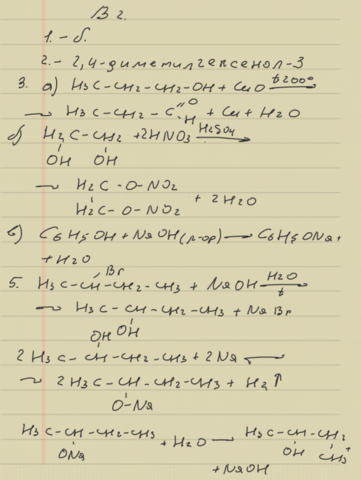 В 2.
1. – б.
2. – 2,4-диметилгексенол-3
3. а) H3C–CH2–CH2–OH + CuO t 200° →
→ H3C–CH2–C=O–H + Cu + H2O
б) H2C–CH2 + 2HNO3 H2SO4 →
OH OH
→ H2C–O–NO2
H2C–O–NO2 + 2H2O
в) C6H5OH + NaOH(р-ор) → C6H5ONa +
+ H2O
5. H3C–CH–CH2–CH3 + NaOH H2O t →
Br
→ H3C–CH–CH2–CH3 + NaBr
OH OH
2H3C–CH–CH2–CH3 + 2Na →
→ 2H3C–CH–CH2–CH3 + H2↑
O–Na
H3C–CH–CH2–CH3 + H2O → H3C–CH–CH2
ONa OH CH3 +
+ NaOH